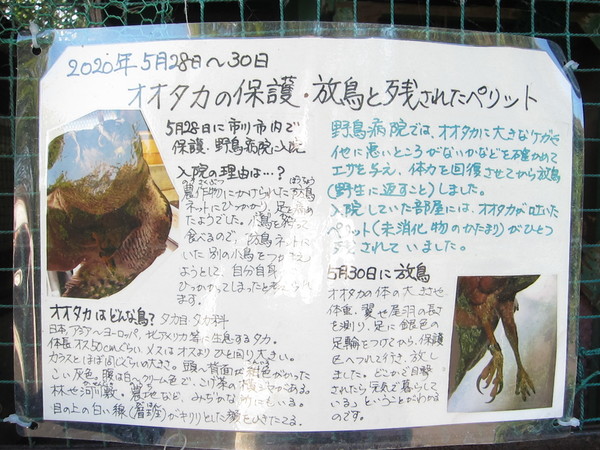 2020年5月28日〜30日
オオタカの保護・放鳥と残されたペリット
5月28日に市川市内で
保護、野鳥病院に入院
入院の理由は…?
農作物にかけられた防鳥
ネットにひっかかり、足を痛め
たようでした。小鳥を狩って
食べるので、防鳥ネットに
いた別の小鳥をつかまえ
ようとして、自分自身
ひっかかってしまったと考え
ます。
野鳥病院では、オオタカに大きなケガや
他に悪いところがないかなどを確かめて
エサを与え、体力を回復させてから放鳥
(野生に返すこと)しました。
入院していた部屋には、オオタカが吐いた
ペリット(未消化物のかたまり)がひとつ
残されていました。
5月30日に放鳥
オオタカの体の大きさや
体重、翼や尾羽の長さ
を測り、足に銀色の
足輪をつけてから、保護
色へつれて行き、放し
ました。どこかで目撃
されたら「元気で暮らして
いる」ということがわかる
のです。
オオタカはどんな鳥? タカ目・タカ科
日本、アジア〜ヨーロッパ、北アメリカ等に生息するタカ。
体長オス50cmぐらい メスはオスよりひと回り大きい。
カラスとほぼ同じくらいの大きさ。頭や背面が がかった
こい灰色。腹は白〜クリーム色で、こげ茶の シマがある。
林や河川敷・農地など、みぢかな にもいる。
目の上の白い線(眉斑)がキリリとした顔をひきたてる。